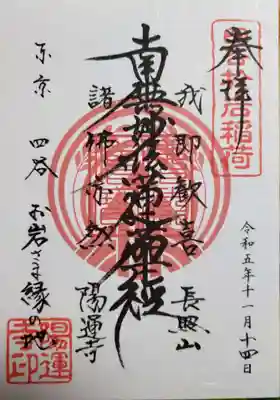 奉拝
令和五年十一月十四日
我即歓喜
長照山
南無妙法蓮華経
諸佛亦然
陽運寺
東京 四谷 お岩さま縁の地
陽運
寺印